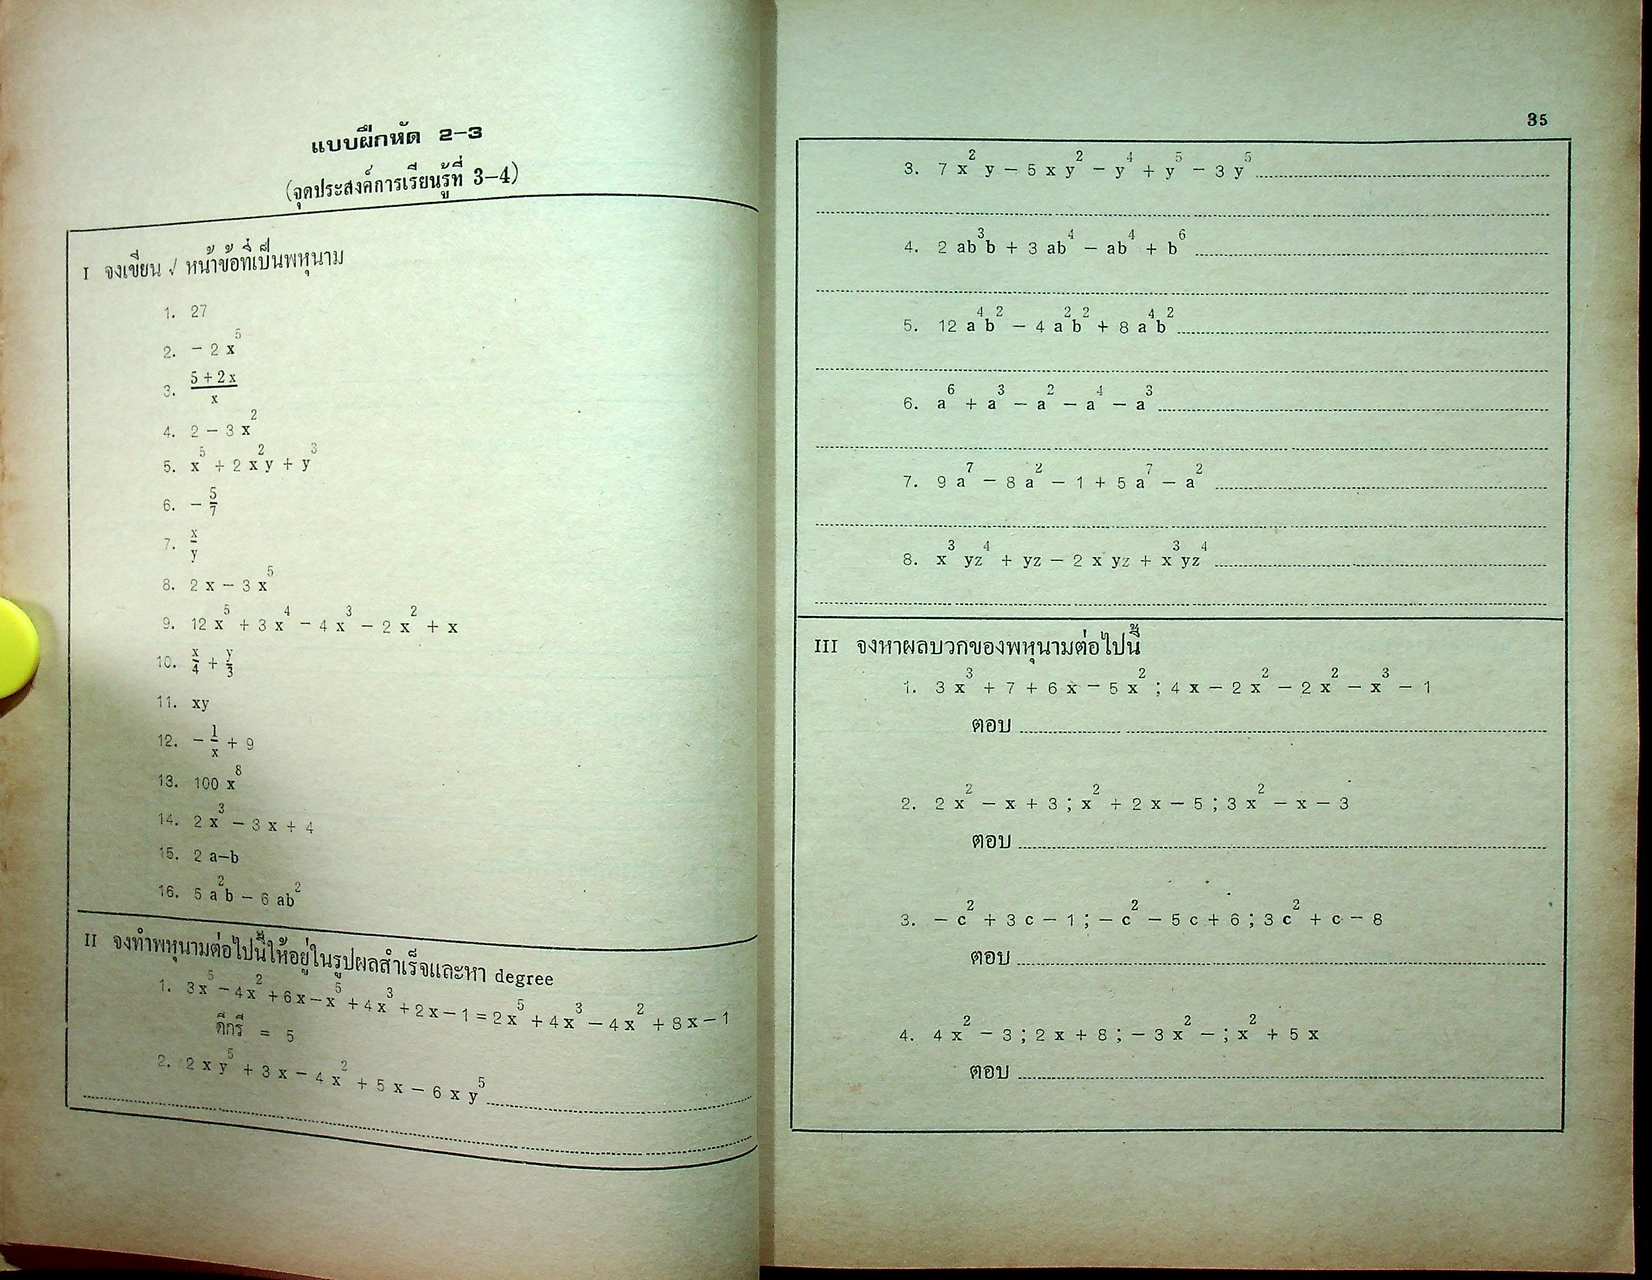 แบบฝึกหัด 2-3
(จุดประสงค์การเรียนรู้ที่ 3-4)
I จงเขียน √ หน้าข้อที่เป็นพหุนาม
1. 27
2. − 2 x⁵
3. (5 + 2x)/x
4. 2 − 3 x²
5. x⁵ + 2 x²y + y³
6. − 5/7
7. x/y
8. 2 x − 3 x⁵
9. 12 x⁵ + 3 x⁴ − 4 x³ − 2 x² + x
10. x/4 + y/3
11. xy
12. − 1/x + 9
13. 100 x⁸
14. 2 x³ − 3 x + 4
15. 2 a−b
16. 5 a²b − 6 ab²
II จงทำพหุนามต่อไปนี้ให้อยู่ในรูปผลสำเร็จและหา degree
1. 3x⁵ − 4x² + 6x − x⁵ + 4x³ + 2x − 1 = 2x⁵ + 4x³ − 4x² + 8x − 1
ดีกรี = 5
2. 2 x y⁵ + 3x − 4x² + 5x − 6 x y⁵
35
3. 7 x²y − 5 x y² − y⁴ + y⁵ − 3 y⁵
4. 2 ab³b + 3 ab⁴ − ab⁴ + b⁶
5. 12 a⁴b² − 4 a²b² + 8 a⁴b²
6. a⁶ + a³ − a² − a⁴ − a³
7. 9 a⁷ − 8 a² − 1 + 5 a⁷ − a²
8. x³ yz⁴ + yz − 2 x yz + x³yz⁴
III จงหาผลบวกของพหุนามต่อไปนี้
1. 3 x³ + 7 + 6 x − 5 x² ; 4 x − 2 x² − 2 x² − x³ − 1
ตอบ
2. 2 x² − x + 3 ; x² + 2 x − 5 ; 3 x² − x − 3
ตอบ
3. − c² + 3 c − 1 ; − c² − 5 c + 6 ; 3 c² + c − 8
ตอบ
4. 4 x² − 3 ; 2 x + 8 ; − 3 x² − ; x² + 5 x
ตอบ